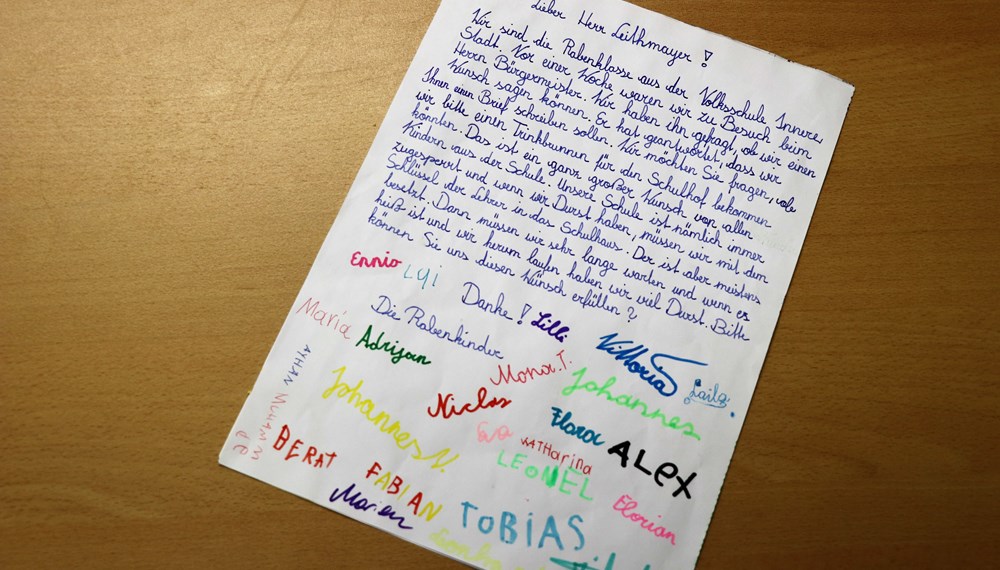 Lieber Herr Leithmayer!
Wir sind die Rabenklasse aus der Volksschule Innere
Stadt. Vor einer Woche waren wir zu Besuch beim
Herrn Bürgermeister. Wir haben ihn gefragt, ob wir einen
Wunsch sagen können. Er hat geantwortet, dass wir
Ihnen einen Brief schreiben sollen. Wir möchten Sie fragen, ob
wir bitte einen Trinkbrunnen für den Schulhof bekommen
könnten. Das ist ein ganz großer Wunsch von allen
Kindern aus der Schule. Unsere Schule ist nämlich immer
zugesperrt und wenn wir Durst haben, müssen wir mit dem
Schlüssel der Lehrer in das Schulhaus. Der ist aber meistens
besetzt. Dann müssen wir sehr lange warten und wenn es
heiß ist und wir herum laufen haben wir viel Durst. Bitte
können Sie uns diesen Wunsch erfüllen?
Danke!
Die Rabenkinder
Ennio
Lilli
Vittoria
Laila
Maria
Adrijan
Mona.T.
Johannes
Johannes V.
Niclas
Flora
ALEX
Eva
KATHarina
LEONEL
AYHAN MUHAMMED
BERAT
FABIAN
Florian
Marien
TOBIAS